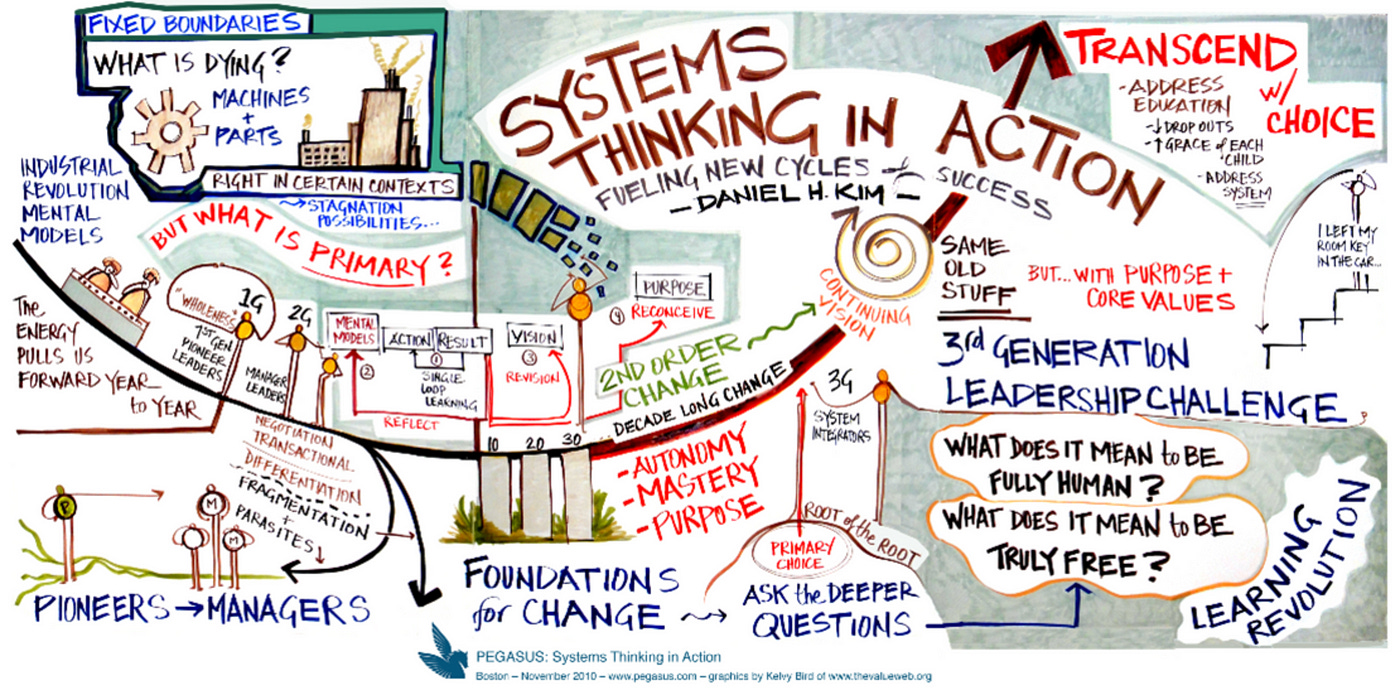 FIXED BOUNDARIES
WHAT IS DYING?
MACHINES
+
PARTS
RIGHT IN CERTAIN CONTEXTS
STAGNATION
POSSIBILITIES...
INDUSTRIAL
REVOLUTION
MENTAL
MODELS
BUT WHAT IS PRIMARY?
The
ENERGY
PULLS US
FORWARD YEAR
to YEAR
"WHOLENESS"
1G
1ST GEN
PIONEER
LEADERS
2G
MANAGER
LEADERS
MENTAL
MODELS
②
ACTION
RESULT
①
SINGLE
LOOP
LEARNING
REFLECT
VISION
③
REVISION
PURPOSE
④ RECONCEIVE
2ND ORDER
CHANGE
10 20 30 ...
DECADE LONG CHANGE
NEGOTIATION
TRANSACTIONAL
DIFFERENTIATION
FRAGMENTATION
+
PARASITES
P
M
M
M
PIONEERS → MANAGERS
SYSTEMS
THINKING IN ACTION
FUELING NEW CYCLES of SUCCESS
- DANIEL H. KIM -
CONTINUING
VISION
SAME
OLD
STUFF
BUT... WITH PURPOSE +
CORE VALUES
TRANSCEND
w/
CHOICE
- ADDRESS
EDUCATION
- ↓ DROP OUTS
- ↑ GRACE of EACH
CHILD
- ADDRESS
SYSTEM
I LEFT MY
ROOM KEY
IN THE CAR...
3rd GENERATION
LEADERSHIP CHALLENGE
3G
SYSTEM
INTEGRATORS
- AUTONOMY
- MASTERY
- PURPOSE
ROOT of the ROOT
PRIMARY
CHOICE
FOUNDATIONS
for CHANGE
ASK the DEEPER
QUESTIONS
WHAT DOES IT MEAN to BE
FULLY HUMAN?
WHAT DOES IT MEAN to BE
TRULY FREE?
LEARNING
REVOLUTION
PEGASUS: Systems Thinking in Action
Boston – November 2010 – www.pegasus.com – graphics by Kelvy Bird of www.thevalueweb.org